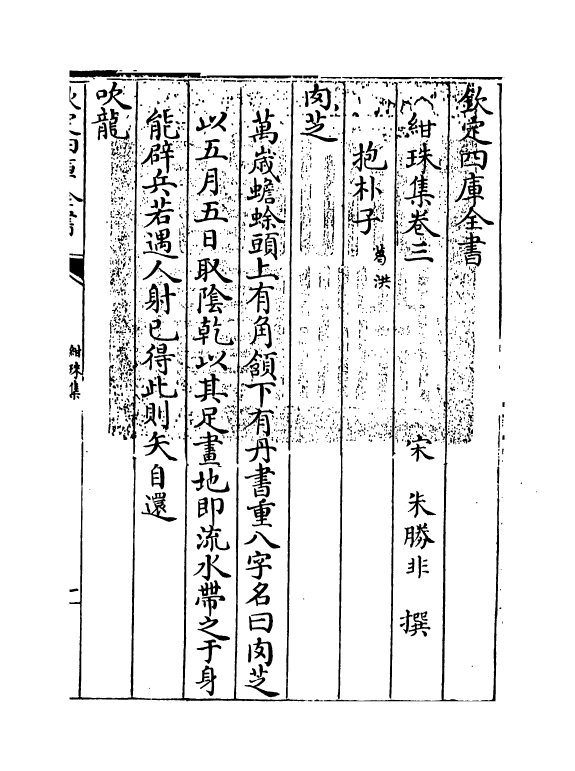 欽定四庫全書
紺珠集卷三　宋　朱勝非　撰
抱朴子　葛洪
肉芝
萬歲蟾蜍頭上有角頷下有丹書重八字名曰肉芝
以五月五日取陰乾以其足畫地即流水帶之于身
能辟兵若遇人射已得此則矢自還
吹龍
欽定四庫全書
紺珠集
一